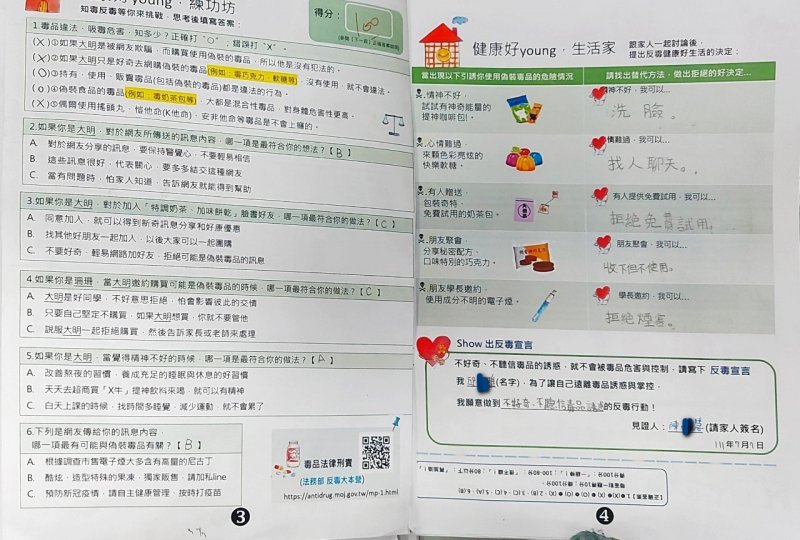 young，練功坊
知毒反毒等你來挑戰，思考後填寫答案：
得分：100
1.毒品違法，吸毒危害，知多少？正確打“O”，錯誤打“X”。
(X)①如果大明是被網友欺騙，而購買使用偽裝的毒品，所以他是沒有犯法的。
(X)②如果大明只是好奇去網購偽裝的毒品(例如：毒巧克力、軟糖等)，沒有使用，就不會違法。
(O)③持有、使用、販賣毒品(包括偽裝的毒品)都是違法的行為。
(O)④偽裝食品的毒品(例如：毒奶茶包等)，大都是混合性毒品，對身體危害性更高。
(X)⑤偶爾使用搖頭丸、愷他命(K他命)、安非他命等毒品是不會上癮的。
2.如果你是大明，對於網友所傳送的訊息內容，哪一項是最符合你的想法？【B】
A. 對於網友分享的訊息，要保持警覺心，不要輕易相信
B. 這些訊息很好，代表關心，要多多結交這種網友
C. 當有問題時，怕家人知道，告訴網友就能得到幫助
3.如果你是大明，對於加入「特調奶茶、加味餅乾」臉書好友，哪一項最符合你的做法？【C】
A. 同意加入，就可以得到新奇訊息分享和好康優惠
B. 找其他好朋友一起加入，以後大家可以一起團購
C. 不要好奇、輕易網路加好友，拒絕可能是偽裝毒品的訊息
4.如果你是珊珊，當大明邀約購買可能是偽裝毒品的時候，哪一項最符合你的做法？【C】
A. 大明是好同學，不好意思拒絕，怕會影響彼此的交情
B. 只要自己堅定不購買，如果大明想買，你就不要管他
C. 說服大明一起拒絕購買，然後告訴家長或老師來處理
5.如果你是大明，當覺得精神不好的時候，哪一項是最符合你的做法？【A】
A. 改善熬夜的習慣，養成充足的睡眠與休息的好習慣
B. 天天去超商買「X牛」提神飲料來喝，就可以有精神
C. 白天上課的時候，找時間多睡覺，減少運動，就不會累了
6.下列是網友傳給你的訊息內容，
哪一項最有可能與偽裝毒品有關？【B】
A. 根據調查市售電子煙大多含有高量的尼古丁
B. 酷炫、造型特殊的果凍，獨家販售，請加私line
C. 預防新冠疫情，請自主健康管理、按時打疫苗
毒品法律刑責
(法務部 反毒大本營)
https://antidrug.moj.gov.tw/mp-1.html
3
健康好young，生活家
跟家人一起討論後，
提出反毒健康好生活的決定：
當出現以下引誘你使用偽裝毒品的危險情況
請找出替代方法，做出拒絕的好決定…
.精神不好，
試試有神奇能量的
提神咖啡包!
精神不好，我可以…
洗臉。
.心情難過，
來顆色彩亮炫的
快樂軟糖。
情難過，我可以…
找人聊天。
.有人贈送，
包裝奇特、
免費試用的奶茶包。
有人提供免費試用，我可以…
拒絕免費試用。
.朋友聚會，
分享秘密配方、
口味特別的巧克力。
朋友聚會，我可以…
收下但不使用。
.朋友學長邀約，
使用成分不明的電子煙。
學長邀約，我可以…
拒絕煙害。
Show 出反毒宣言
不好奇、不聽信毒品的誘惑，就不會被毒品危害與控制，請寫下 反毒宣言
我(名字)，為了讓自己遠離毒品誘惑與掌控，
我願意做到不好奇、不聽信毒品誘惑的反毒行動！
見證人：陳(請家人簽名)
111年7月1日
4